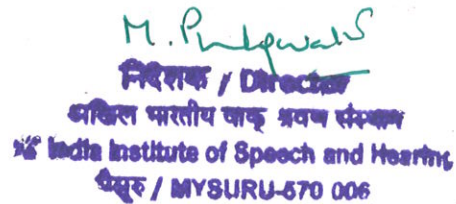 निदेशक / Director
अखिल भारतीय वाक् श्रवण संस्थान
India Institute of Speech and Hearing
मैसूरु / MYSURU-570 006